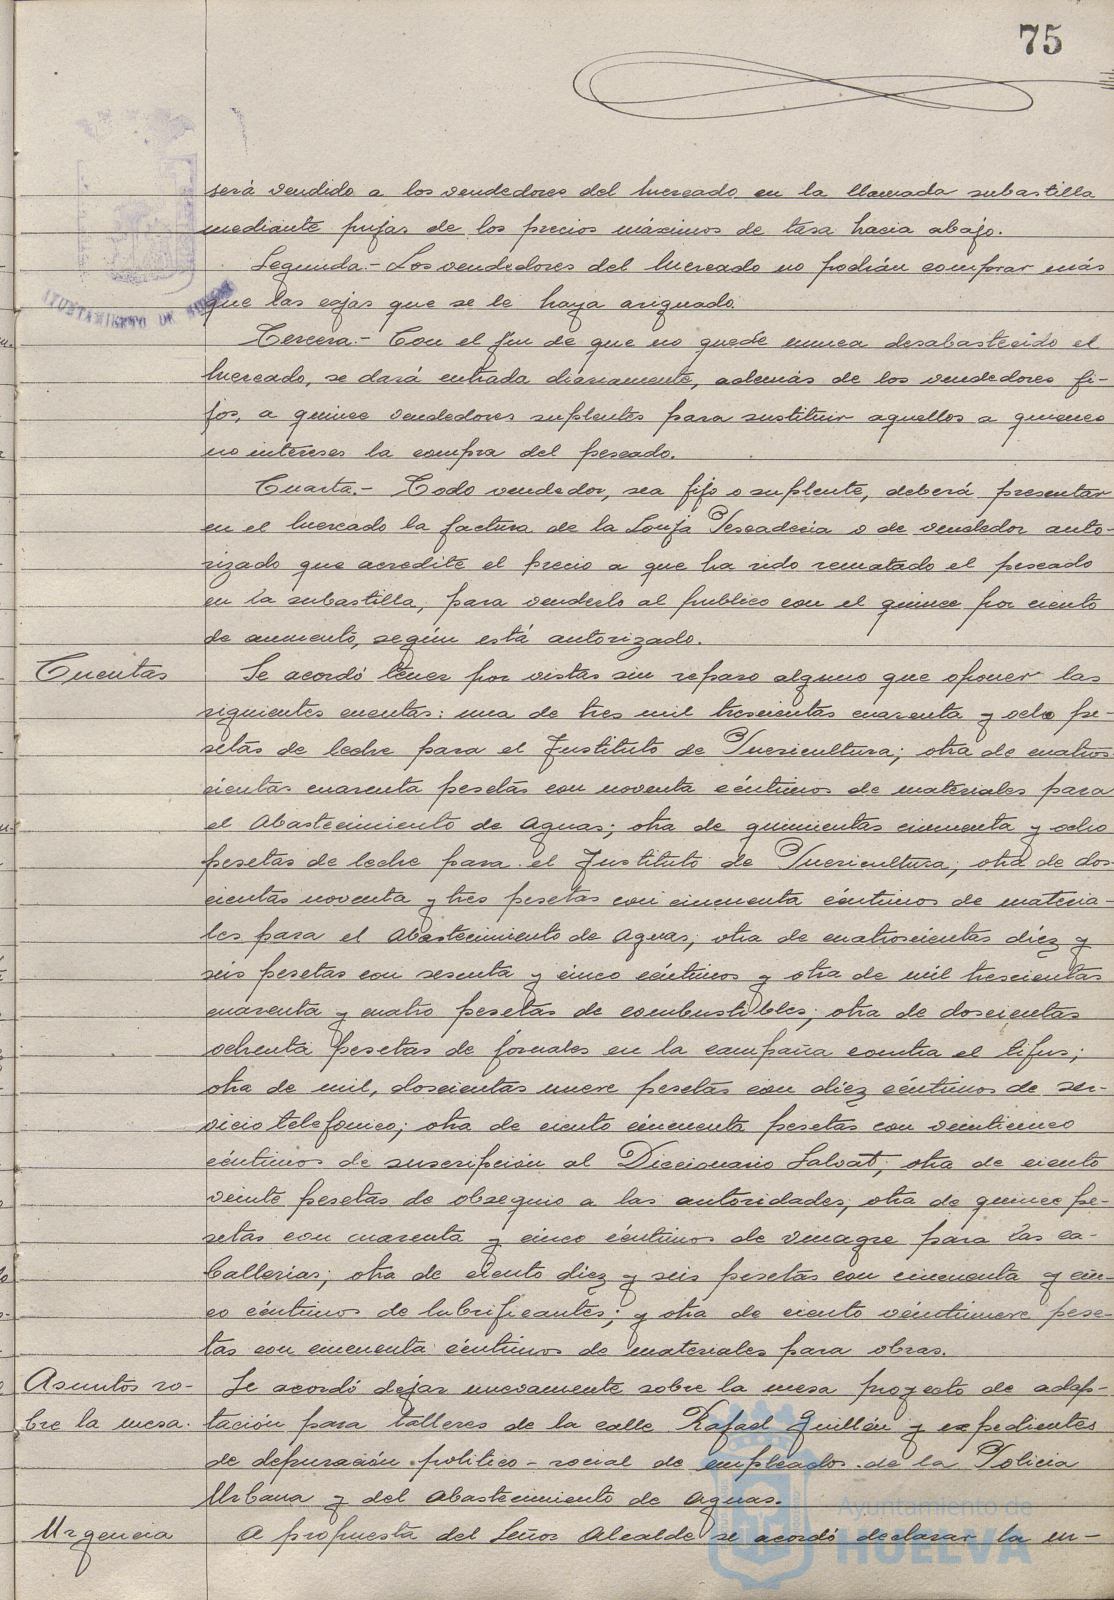 75
AYUNTAMIENTO DE HUELVA
será vendido a los vendedores del Mercado en la llamada subastilla
mediante pujas de los precios máximos de tasa hacia abajo.
Segunda.- Los vendedores del Mercado no podrán comprar más
que las cajas que se le haya asignado.
Tercera.- Con el fin de que no quede nunca desabastecido el
Mercado, se dará entrada diariamente, además de los vendedores fi-
jos, a quince vendedores suplentes para sustituir aquellos a quienes
no interese la compra del pescado.
Cuarta.- Todo vendedor, sea fijo o suplente, deberá presentar
en el Mercado la factura de la Lonja Pescaderia o de vendedor auto-
rizado que acredite el precio a que ha sido rematado el pescado
en la subastilla, para venderlo al publico con el quince por ciento
de aumento, según está autorizado.
Cuentas
Se acordó tener por vistas sin reparo alguno que oponer las
siguientes cuentas: una de tres mil trescientas cuarenta y ocho pe-
setas de leche para el Instituto de Puericultura; otra de cuatro-
cientas cuarenta pesetas con noventa céntimos de materiales para
el Abastecimiento de Aguas; otra de quinientas cincuenta y ocho
pesetas de leche para el Instituto de Puericultura; otra de dos-
cientas noventa y tres pesetas con cincuenta céntimos de materia-
les para el Abastecimiento de Aguas; otra de cuatrocientas diez y
seis pesetas con sesenta y cinco céntimos y otra de mil trescientas
cuarenta y cuatro pesetas de combustibles; otra de doscientas
ochenta pesetas de jornales en la campaña contra el tifus;
otra de mil, doscientas nueve pesetas con diez céntimos de ser-
vicio telefonico; otra de ciento cincuenta pesetas con veinticinco
céntimos de suscripción al Diccionario Salvat; otra de ciento
veinte pesetas de obsequio a las autoridades; otra de quince pe-
setas con cuarenta y cinco céntimos de vinagre para las ca-
ballerias; otra de ciento diez y seis pesetas con cincuenta y cin-
co céntimos de lubrificantes; y otra de ciento veintinueve pese-
tas con cincuenta céntimos de materiales para obras.
Asuntos so-
bre la mesa.
Se acordó dejar nuevamente sobre la mesa proyecto de adap-
tación para talleres de la calle Rafael Guillén y expedientes
de depuración politico-social de empleados de la Policia
Urbana y del Abastecimiento de Aguas.
Urgencia
A propuesta del Señor Alcalde se acordó declarar la ur-
Ayuntamiento de
HUELVA